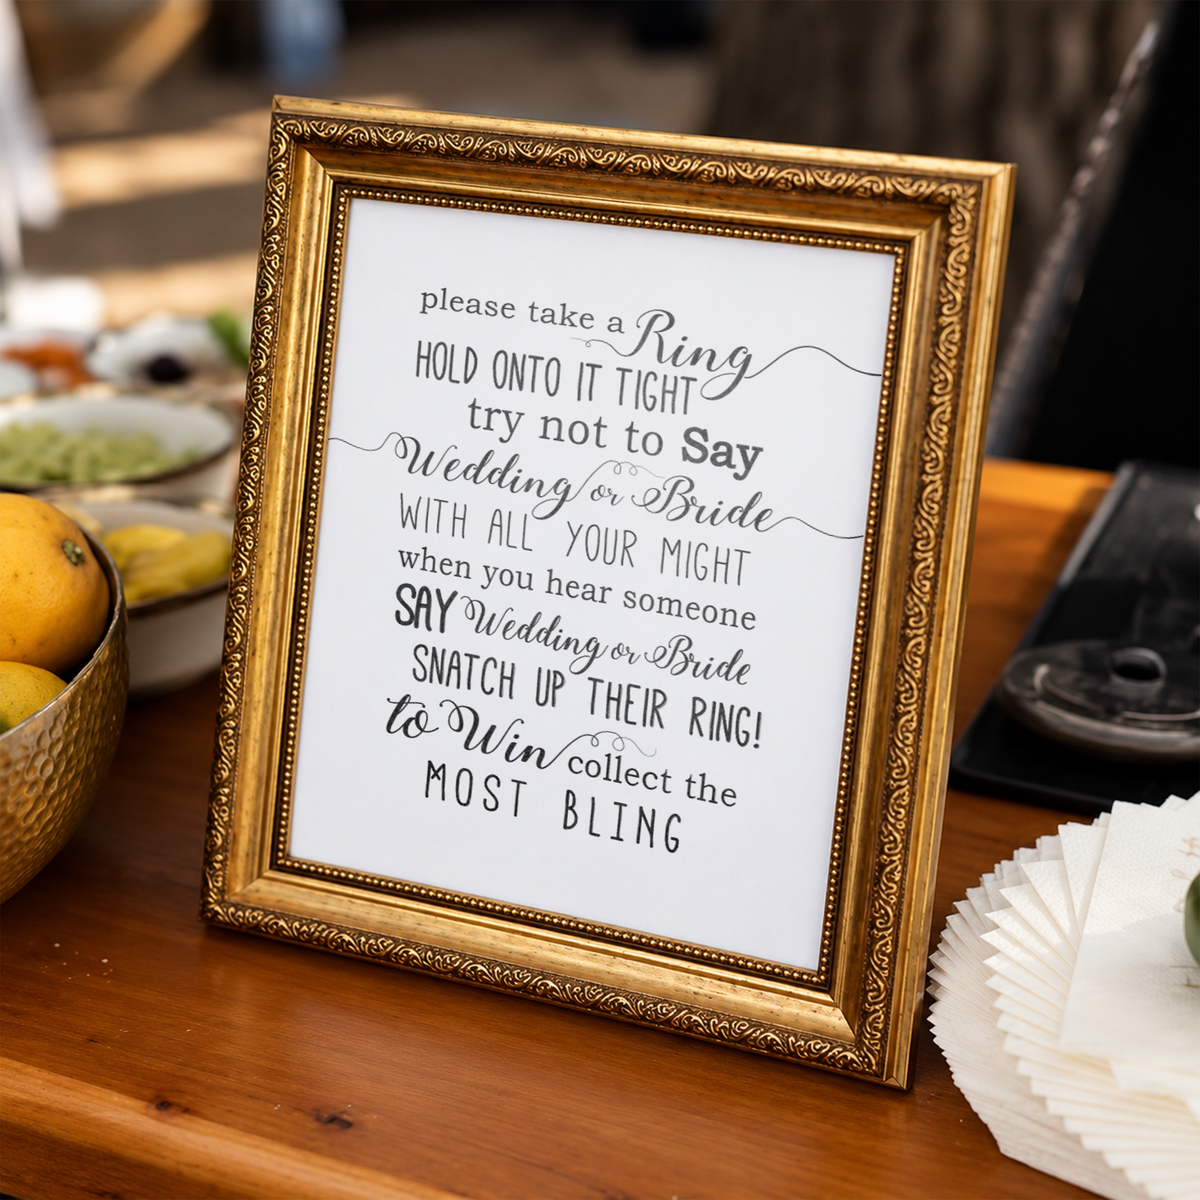 please take a Ring
HOLD ONTO IT TIGHT
try not to Say
Wedding or Bride
WITH ALL YOUR MIGHT
when you hear someone
SAY Wedding or Bride
SNATCH UP THEIR RING!
to Win collect the
MOST BLING